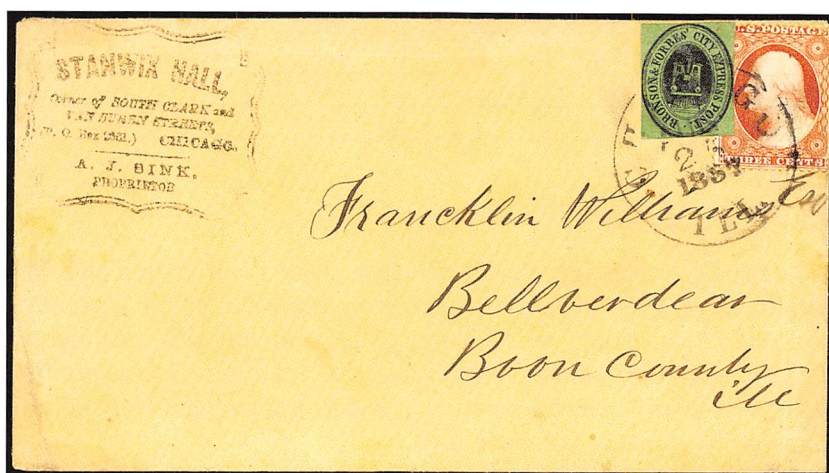 STANWIX HALL,
Corner of SOUTH CLARK and
VAN BUREN STREETS,
(P. O. Box 2381.) CHICAGO.
A. J. SINK,
PROPRIETOR
BRONSON & FORBES' CITY EXPRESS POST.
U.S. POSTAGE
THREE CENTS
ILL
Francklin Williams
Bellverdear
Boon County
ill